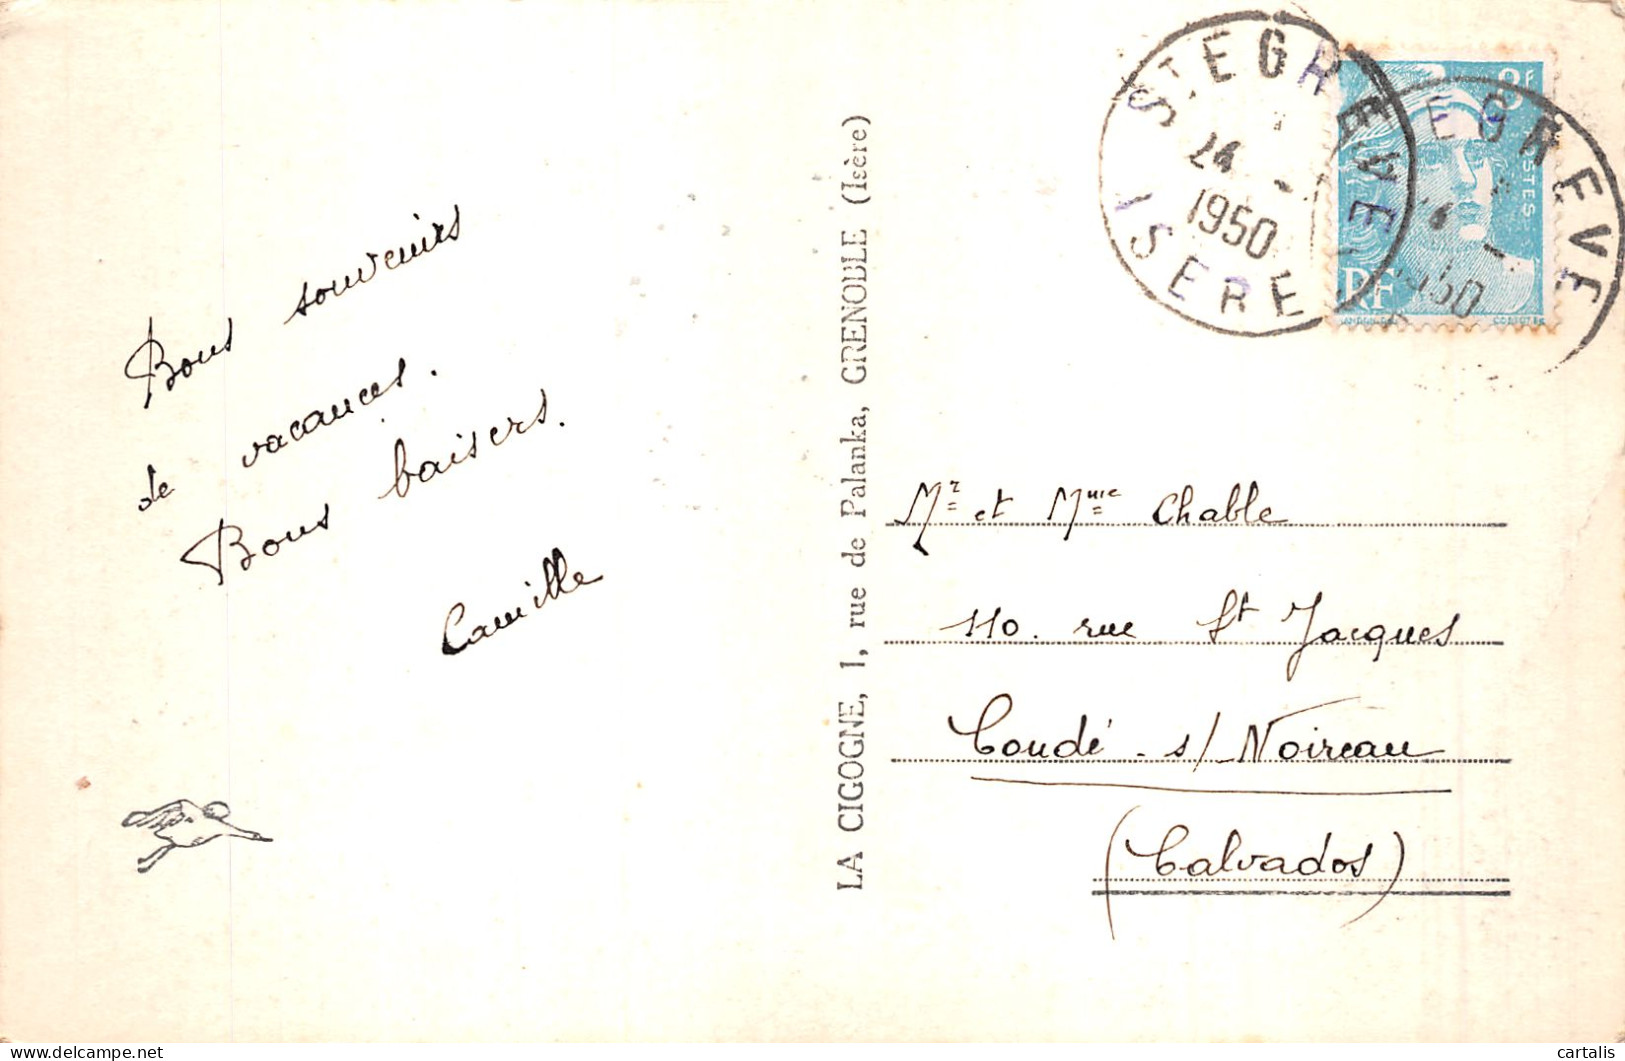 Bons souvenirs
de vacances.
Bons baisers.
Camille
LA CIGOGNE, 1, rue de Palanka, GRENOBLE (Isère)
ST EGREVE
24
1950
ISERE
EGREVE
1950
8F
POSTES
RF
Mr et Mme Chable
110. rue St Jacques
Condé - s/ Noireau
(Calvados)
cartalis